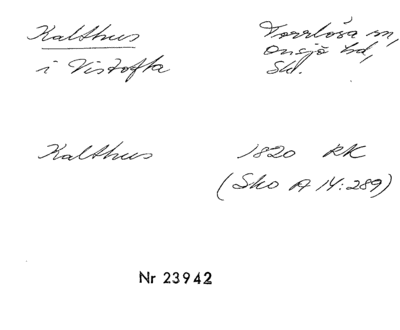 Kalthus
i Vistofta
Torrlösa sn,
Onsjö hd,
Sk.
Kalthus
1820 RK
(Sko A 14:289)
Nr 23942